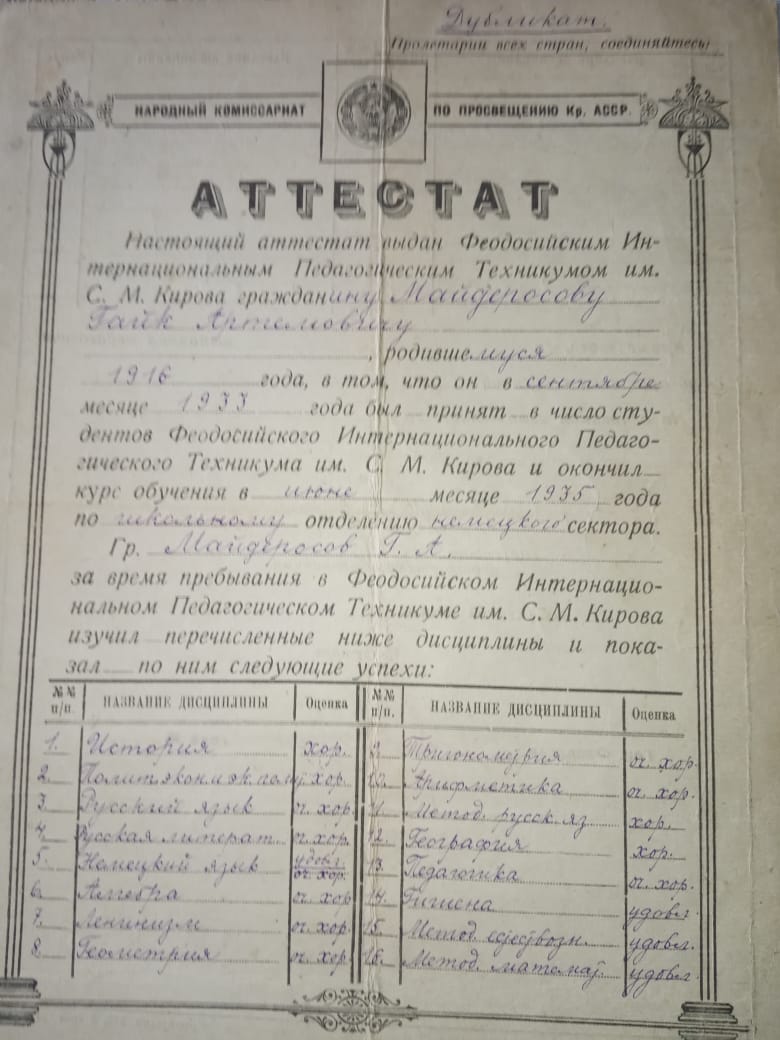 Дубликат.
Пролетарии всех стран, соединяйтесь!
НАРОДНЫЙ КОМИССАРИАТ ПО ПРОСВЕЩЕНИЮ Кр. АССР.
АТТЕСТАТ
Настоящий аттестат выдан Феодосийским Ин-
тернациональным Педагогическим Техникумом им.
С. М. Кирова гражданину Майдеросову
Гайк Артемовичу
, родившемуся
1916 года, в том, что он в сентябре
месяце 1933 года был принят в число сту-
дентов Феодосийского Интернационального Педаго-
гического Техникума им. С. М. Кирова и окончил
курс обучения в июне месяце 1935 года
по школьному отделению немецкого сектора.
Гр. Майдеросов Г. А.
за время пребывания в Феодосийском Интернацио-
нальном Педагогическом Техникуме им. С. М. Кирова
изучил перечисленные ниже дисциплины и пока-
зал по ним следующие успехи:
№№ п/п. НАЗВАНИЕ ДИСЦИПЛИНЫ Оценка №№ п/п. НАЗВАНИЕ ДИСЦИПЛИНЫ Оценка
1. История хор. 9. Тригонометрия оч. хор.
2. Политэконом. эк. хор. 10. Арифметика оч. хор.
3. Русский язык оч. хор. 11. Метод. русск. яз хор.
4. Русская литерат. оч. хор. 12. География хор.
5. Немецкий язык удовл. оч. хор. 13. Педагогика оч. хор.
6. Алгебра оч. хор 14. Гигиена удовл.
7. Ленинизм оч. хор. 15. Метод. удовл.
8. Геометрия оч. хор. 16. Метод. математ. удовл.